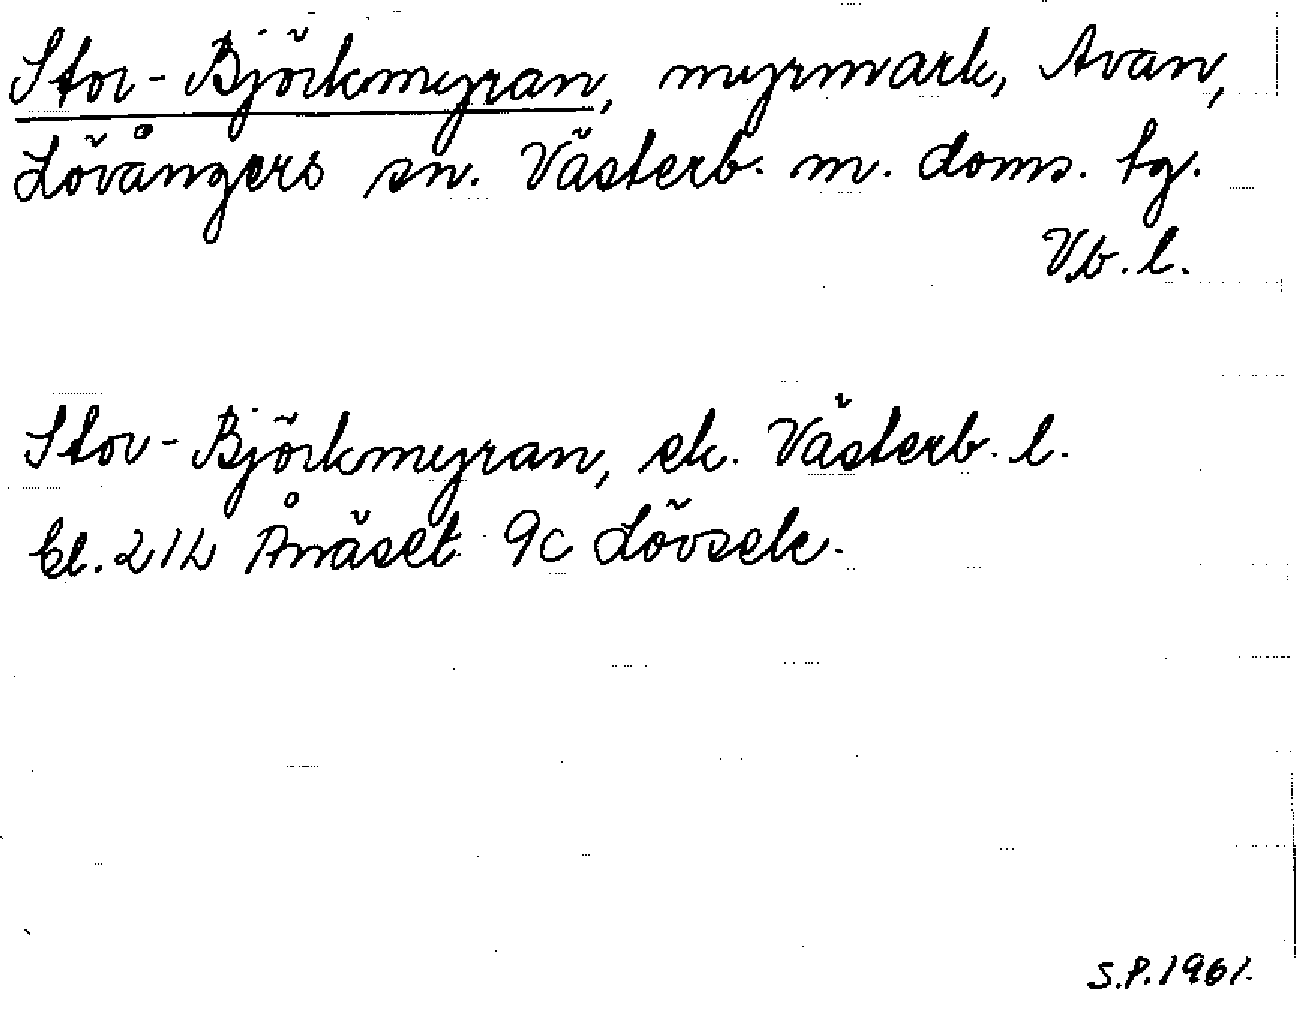 Stor-Björkmyran, myrmark, Avan,
Lövångers sn. Västerb. m. doms. tg.
Vb. l.
Stor-Björkmyran, ek. Västerb. l.
bl. 21L Ånäset 9c Lövsele.
S.P. 1961.